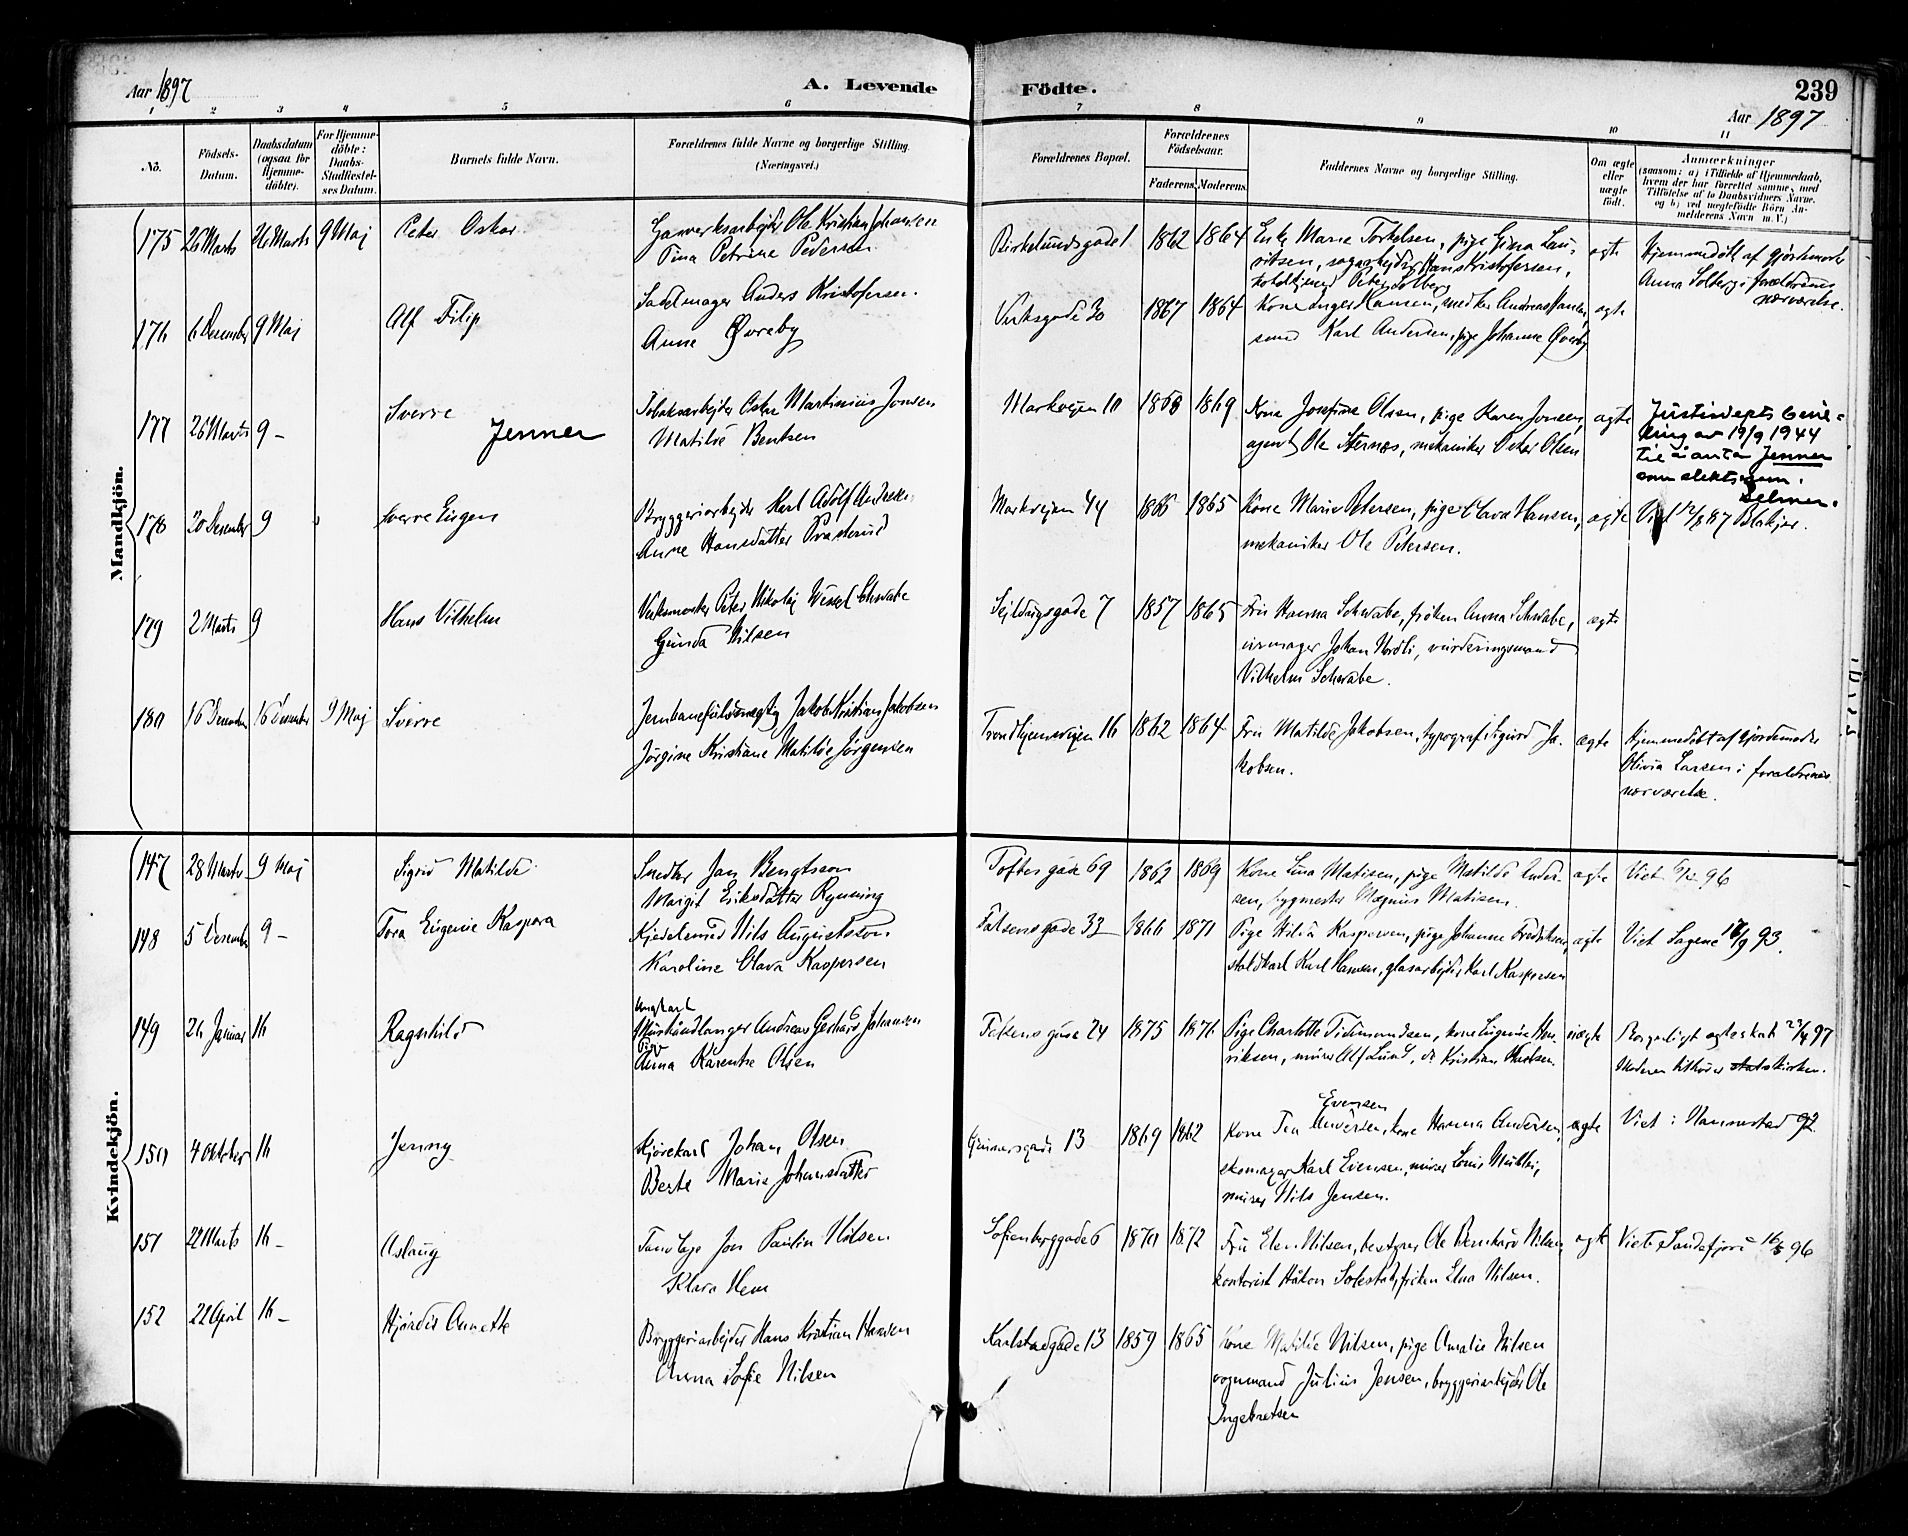 Aar 1897
A. Levende
Födte.
239
Aar 1897
1 2 3 4 5 6 7 8 9 10 11
No.
Födsels-
Datum.
Daabsdatum
(ogsaa for
Hjemme-
döbte).
For Hjemme-
döbte:
Daabs-
Stadfæstel-
ses Datum.
Barnets fulde Navn.
Forældrenes fulde Navne og borgerlige Stilling.
(Næringsvei.)
Forældrenes Bopæl.
Forældrenes
Födselsaar.
Faderens. Moderens.
Faddernes Navne og borgerlige Stilling.
Om ægte
eller
uægte
födt.
Anmærkninger
(saasom: a) i Tilfælde af Hjemmedaab,
hvem der har forrettet samme, med
Tilföielse af to Daabsvidners Navne.
og b) ved uægtefödte Börn An-
melderens Navn m. V.)
Mandkjön.
175 26 Marts 26 Marts 9 Maj Peter Oskar
Garverksarbejder Ole Kristian Johansen
Tina Petrine Pedersen
Birkelundsgade 1 1862 1864
Enke Marie Torkelsen, pige Gina Lau-
ritsen, sagarbejder Hans Kristofersen,
Peter Solberg
ægte
Hjemmedøbt af gjordemoder
Anna Solberg i forældrenes
nærværelse.
176 6 December 9 Maj Alf Filip
Sadelmager Anders Kristofersen
Anne Øvreby
Verksgade 30 1867 1864
Kone Inger Hansen, snedker Andreas Hansen,
smed Karl Andersen, pige Johanne Øvreby
ægte
177 26 Marts 9 - Sverre
Jenner
Tobaksarbejder Oskar Martinius Jonsen
Matilde Bentsen
Markvejen 10 1868 1869
Kone Josefine Olsen, pige Karen Jonsen,
agent Ole Sternes, mekaniker Oskar Olsen
ægte
Justisdepts bevil-
ling av 19/9 1944
til å anta Jenner
som slektsnavn.
178 20 December 9 Sverre Eugen
Bryggeriarbejder Karl Adolf Andersen
Anne Hansdatter Prasterud
Markvejen 44 1866 1865
Kone Marie Petersen, pige Olava Hansen,
mekaniker Ole Petersen.
ægte
Viet 12/8 87 Blakjer.
179 2 Marts 9 Hans Vilhelm
Verksmester Peter Nikolaj Wessel Schwabe
Gunda Nilsen
Sejldugsgade 7 1857 1865
Fru Hanna Schwabe, frøken Anna Schwabe,
urmager Johan Nordli, vurderingsmand
Vilhelm Schwabe.
ægte
180 16 December 16 December 9 Maj Sverre
Jernbanefuldmægtig Jakob Kristian Jakobsen
Jørgine Kristiane Matilde Jørgensen
Trondhjemsvejen 16 1862 1864
Fru Matilde Jakobsen, typograf Sigurd Ja-
kobsen.
ægte
Hjemmedøbt af gjordemoder
Olivia Larsen i forældrenes
nærværelse.
Kvindekjön.
147 28 Marts 9 Maj Sigrid Matilde
Snedker Jan Bengtsson
Margit Eriksdatter Rynning
Toftesgade 69 1862 1869
Kone Lina Matisen, pige Matilde Ander-
sen, bygmester Magnus Matisen.
ægte
Viet 96
148 5 December 9 - Tora Eugenie Kaspara
Kjedelsmed Nils Augustsson
Karoline Olava Kaspersen
Falsensgade 33 1866 1871
Pige Hilda Kaspersen, pige Johanne Fredriksen,
staldkarl Karl Hansen, glasarbejder Karl Kaspersen
ægte
Viet Sagene 17/9 93.
149 26 Januar 16 Ragnhild
Ungkarl
Murhåndlanger Andreas Gerhard Johansen
Pige
Anna Karentse Olsen
Falsensgade 24 1875 1876
Pige Charlotte Tidemandsen, kone Eugenie Hen-
riksen, murer Alf Lund, do Kristian Karlsen.
uægte
Borgerligt ægteskab 97
Moderen tilhører statskirken.
150 4 Oktober 16 Jenny
Kjørekarl Johan Olsen
Berte Marie Johansdatter
Gjuinersgade 13 1869 1862
Evensen
Kone Tea Andersen, kone Hanna Andersen,
skomager Karl Evensen, murer Louis Müller,
murer Nils Jensen.
ægte
Viet i Hannestad 92.
151 22 Marts 16 - Aslaug
Tandlæge Jon Paulin Nilsen
Klara Hem
Sofienberggade 6 1870 1872
Fru Elen Nilsen, bestyrer Ole Bernhard Nilsen,
kontorist Håkon Solestad, frøken Elna Nilsen.
ægte
Viet i Sandefjord 16/5 96
152 22 April 16 - Hjørdis Annette
Bryggeriarbejder Hans Kristian Hansen
Anna Sofie Nilsen
Karlstadgade 13 1859 1865
Kone Matilde Nilsen, pige Amalie Nilsen
vognmand Julius Jensen, bryggeriarbejder Ole
Ingebretsen